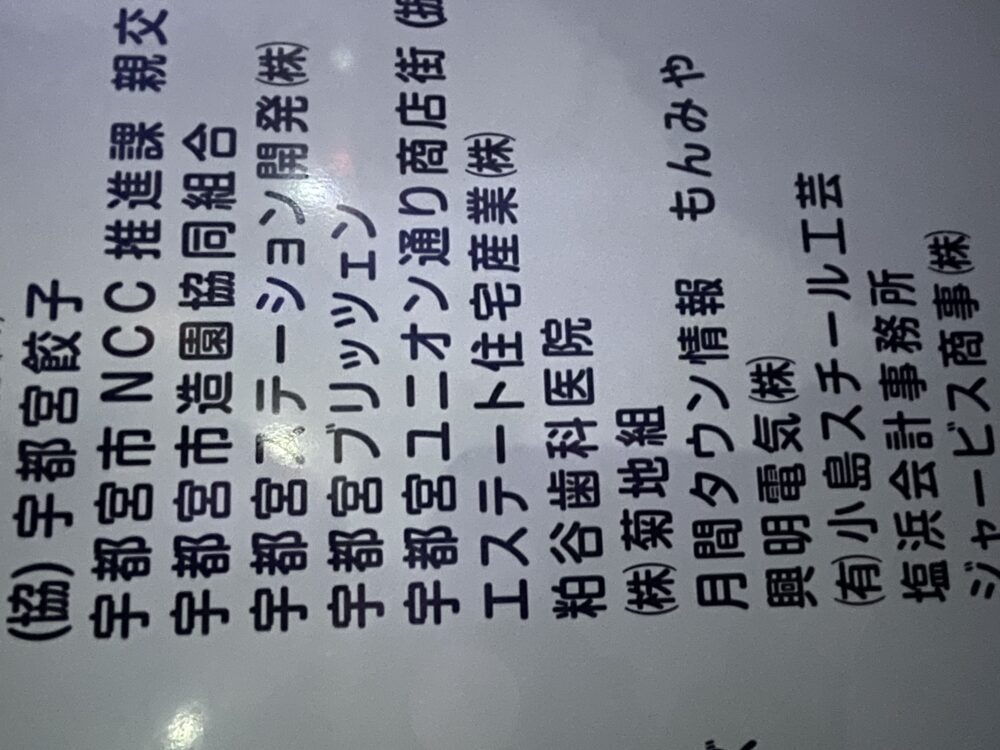 (協)宇都宮餃子
宇都宮市NCC推進課 親交
宇都宮市造園協同組合
宇都宮ステーション開発㈱
宇都宮ブリッツェン
宇都宮ユニオン通り商店街(振
エステート住宅産業㈱
粕谷歯科医院
㈱菊地組
月間タウン情報 もんみや
興明電気㈱
㈲小島スチール工芸
塩浜会計事務所
ジャービス商事㈱